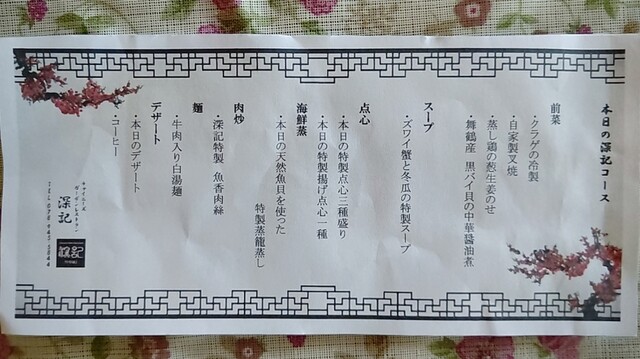 本日の深記コース
前菜
・クラゲの冷製
・自家製叉焼
・蒸し鶏の葱生姜のせ
・舞鶴産 黒バイ貝の中華醤油煮
スープ
・ズワイ蟹と冬瓜の特製スープ
点心
・本日の特製点心三種盛り
・本日の特製揚げ点心一種
海鮮蒸
・本日の天然魚貝を使った
特製蒸籠蒸し
肉炒
・深記特製 魚香肉絲
麺
・牛肉入り白湯麺
デザート
・本日のデザート
・コーヒー
チャイニーズ
ガーデンレストラン
深記
深記